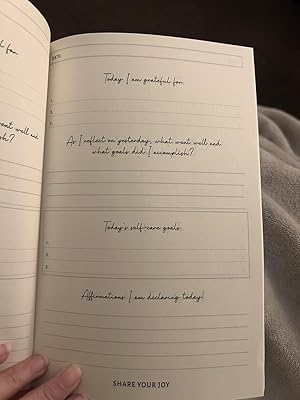 l for:
DATE:
Today I am grateful for:
1.
2.
3.
t went well and
ish?
As I reflect on yesterday, what went well and
what goals did I accomplish?
Today's self-care goals:
1.
2.
3.
Affirmations I am declaring today!
SHARE YOUR JOY